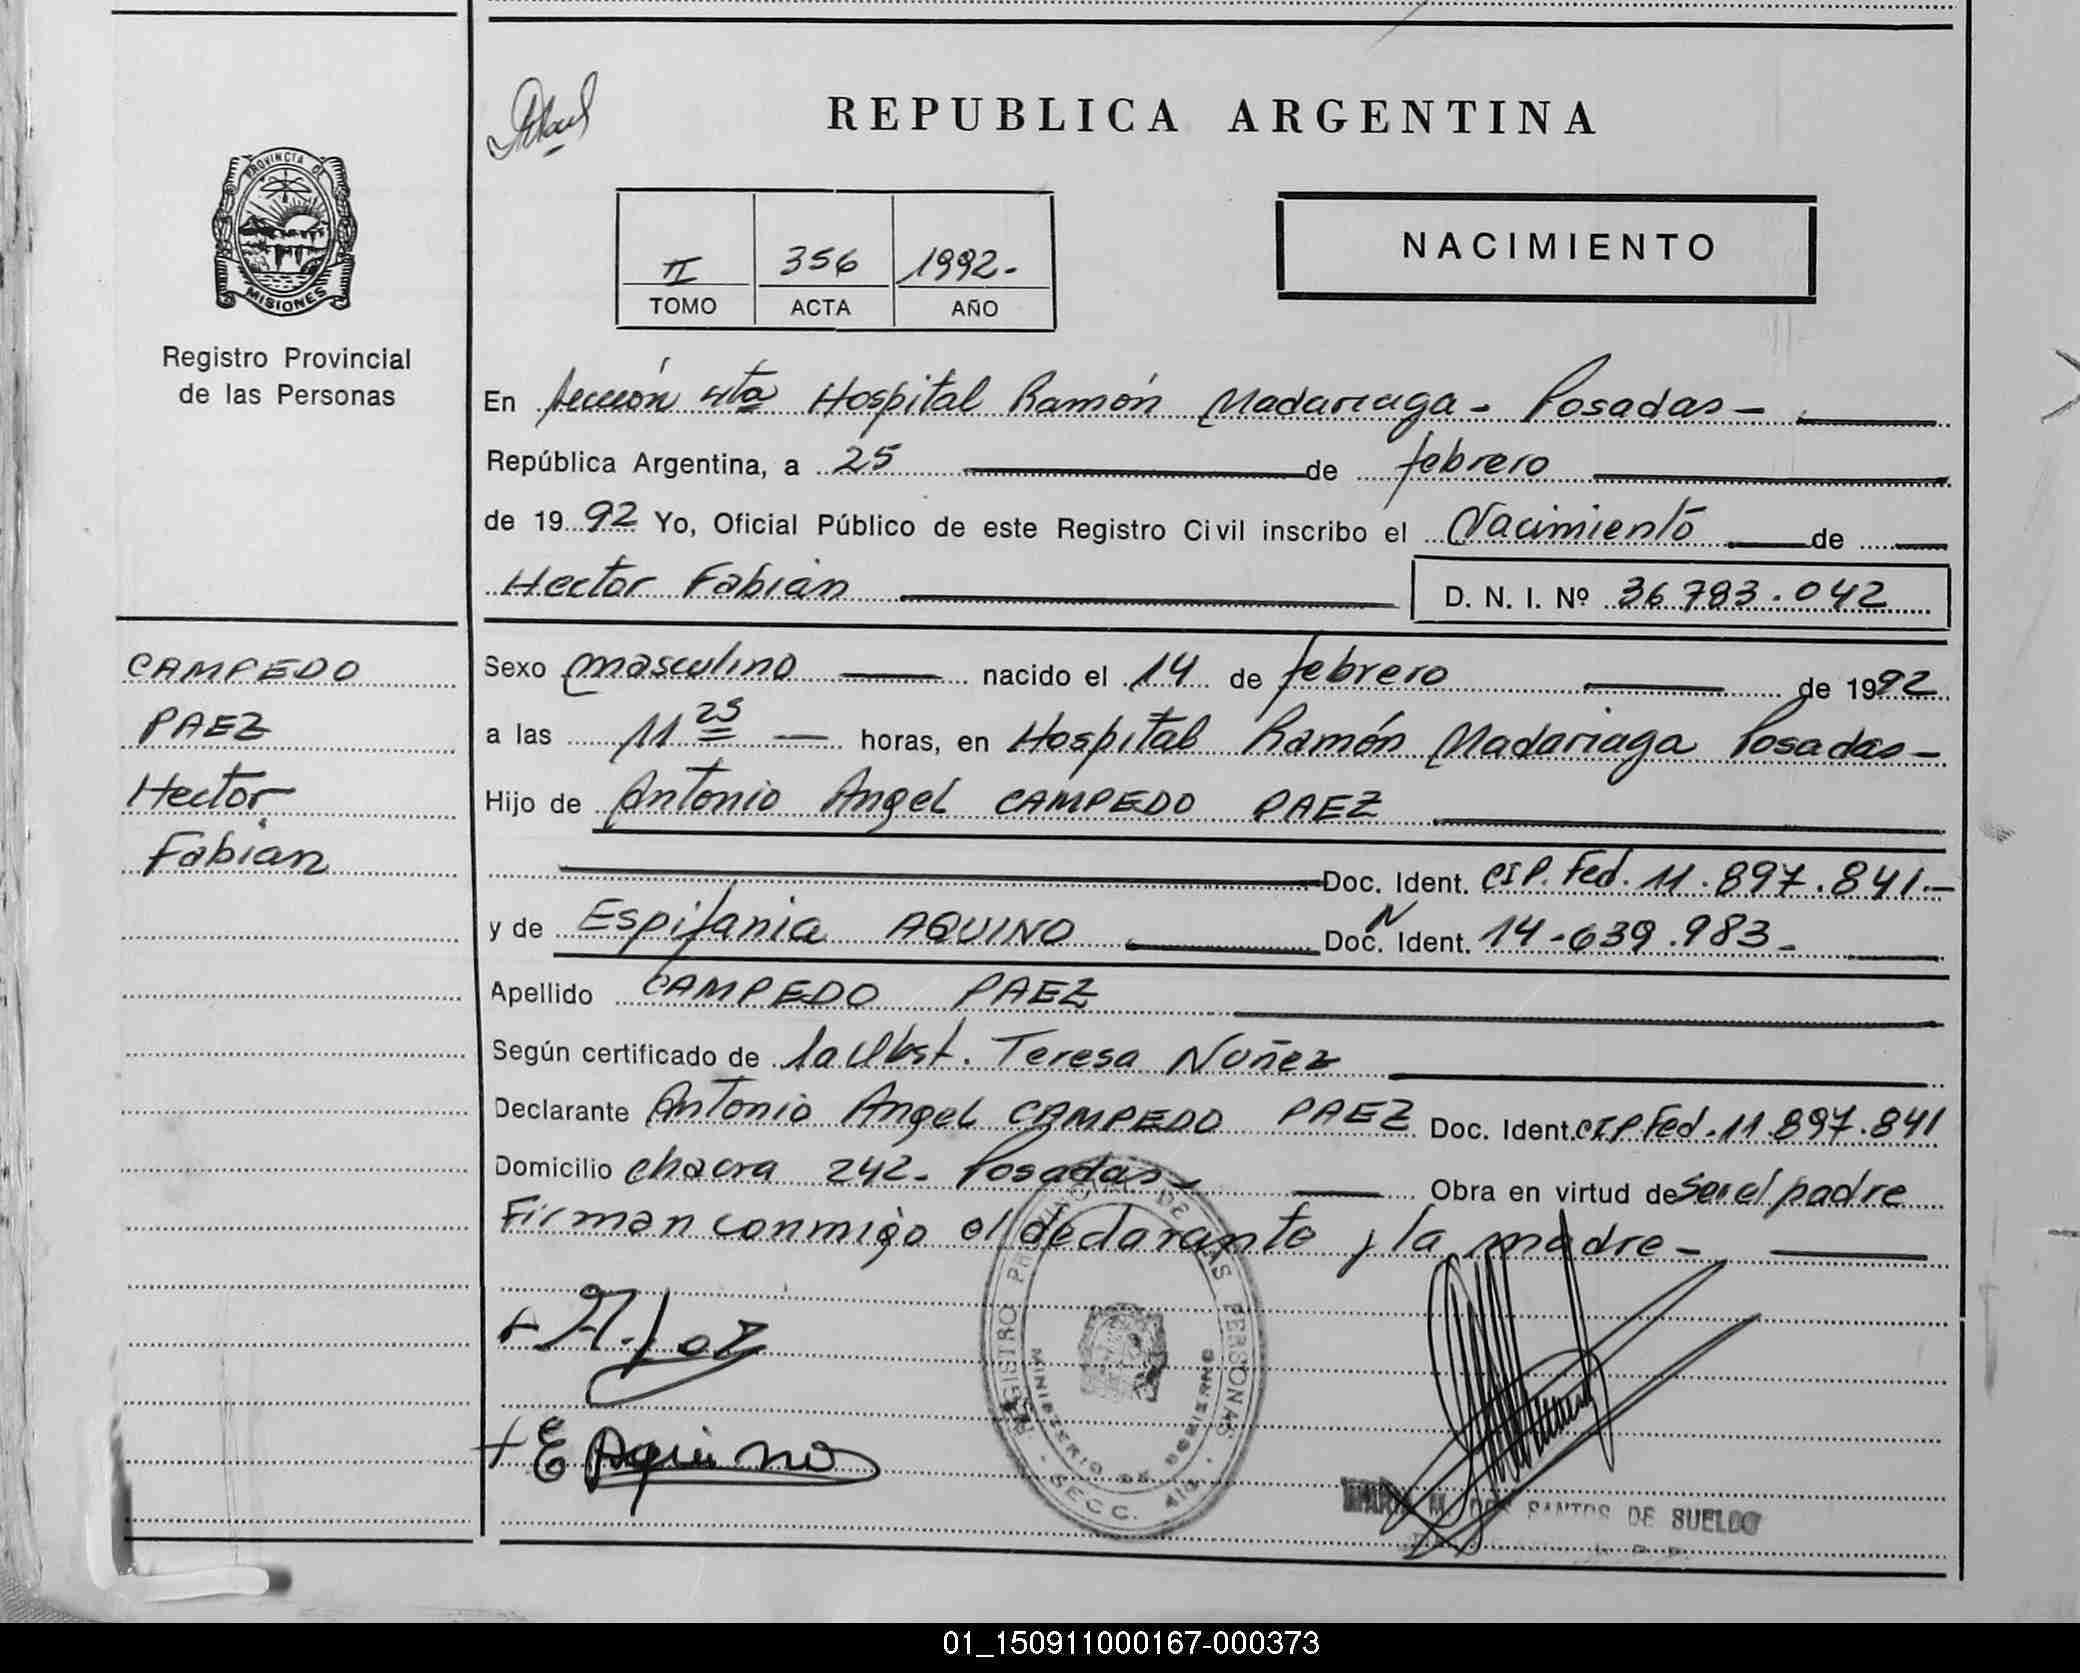 REPUBLICA ARGENTINA
PROVINCIA DE
MISIONES
Registro Provincial
de las Personas
II 356 1992.-
TOMO ACTA AÑO
NACIMIENTO
En Sección 4ta Hospital Ramón Madariaga - Posadas -
República Argentina, a 25 de febrero
de 1992 Yo, Oficial Público de este Registro Civil inscribo el Nacimiento de
Hector Fabián D. N. I. Nº 36.783.042
CAMPEDO
PAEZ
Hector
Fabián
Sexo masculino nacido el 14 de febrero de 1992
a las 11 25 horas, en Hospital Ramón Madariaga Posadas -
Hijo de Antonio Angel CAMPEDO PAEZ
Doc. Ident. CIP. Fed. 11.897.841.-
y de Espifania AQUINO Doc. N Ident. 14.639.983 -
Apellido CAMPEDO PAEZ
Según certificado de la Obst. Teresa Nuñez
Declarante Antonio Angel CAMPEDO PAEZ Doc. Ident. CIP Fed. 11.897.841
Domicilio chacra 242 - Posadas - Obra en virtud de ser el padre
Firman conmigo el declarante y la madre -
E Aquino
REGISTRO PROVINCIAL DE LAS PERSONAS
MINISTERIO DE GOBIERNO
SECC. 4ta.
M. DOS SANTOS DE SUELDO
01_150911000167-000373